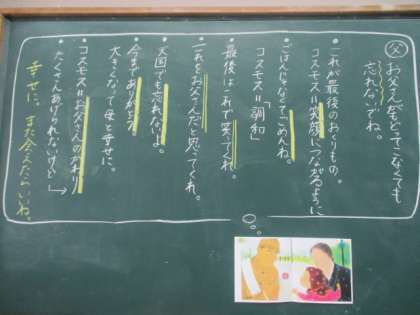 父 お父さんがもどってこなくても
忘れないでね。
・これが最後のおくりもの。
コスモス=笑顔につながるように
・ごはんじゃなくてごめんね。
コスモス=「調和」
・最後はこれで笑ってくれ。
・これをお父さんだと思ってくれ。
・天国でも忘れないよ。
・今までありがとう
大きくなって母と幸せに。
・コスモス=お父さんのかわり
たくさんあげられないけど
幸せに、また会えたらいいね。